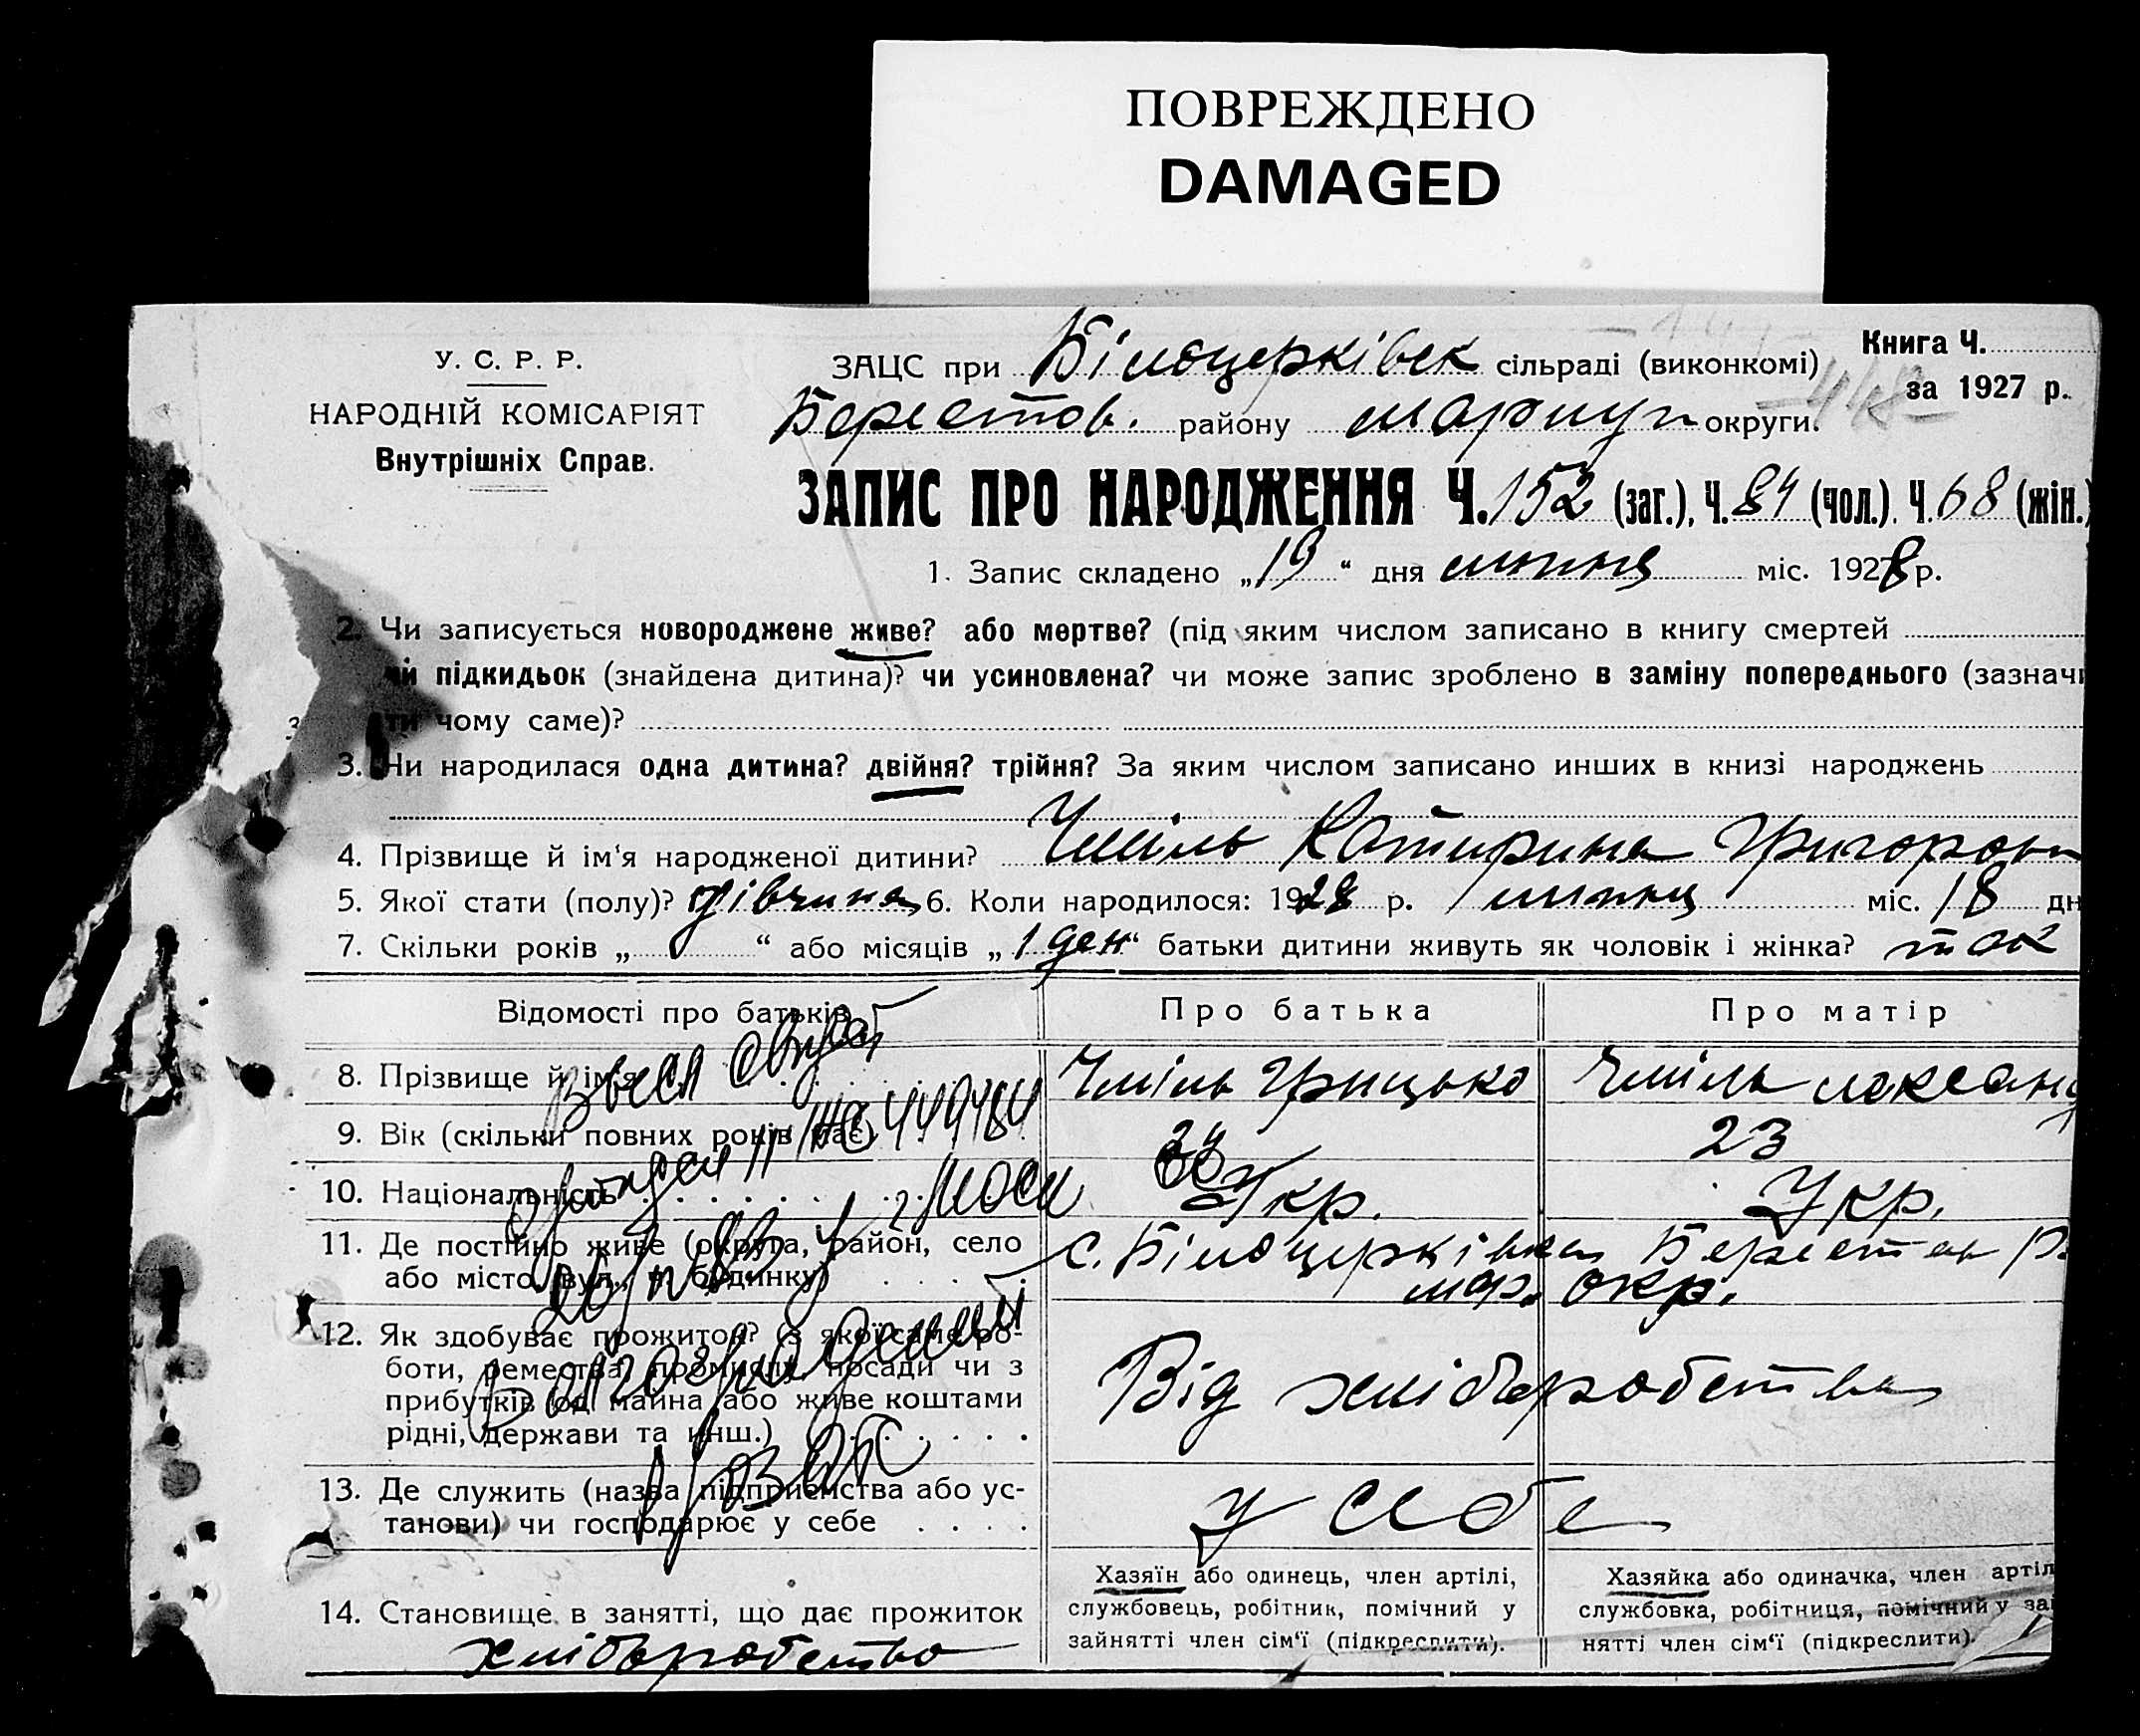 ПОВРЕЖДЕНО
DAMAGED
У. С. Р. Р.
НАРОДНІЙ КОМІСАРІЯТ
Внутрішніх Справ.
ЗАЦС при Білоцерківск сільраді (виконкомі)
Книга Ч.
за 1927 р.
Берестов. району Маріуп округи.
ЗАПИС ПРО НАРОДЖЕННЯ Ч. 152 (заг.), Ч. 84 (чол.). Ч. 68 (жін.)
1. Запис складено „19“ дня липня міс. 1928 р.
2. Чи записується новороджене живе? або мертве? (під яким числом записано в книгу смертей
чи підкидьок (знайдена дитина)? чи усиновлена? чи може запис зроблено в заміну попереднього (зазначи
ти чому саме)?
3. Чи народилася одна дитина? двійня? трійня? За яким числом записано инших в книзі народжень
4. Прізвище й ім‘я народженої дитини? Чміль Катирина Григоровн
5. Якої стати (полу)? дівчина 6. Коли народилося: 1928 р. липня міс. 18 дн
7. Скільки років „ “ або місяців „1 ден“ батьки дитини живуть як чоловік і жінка? так
Відомості про батьків
Про батька
Про матір
8. Прізвище й ім‘я
Чміль Грицько
Чміль Лександ
9. Вік (скільки повних років має)
23
10. Національність
Укр.
Укр.
11. Де постійно живе (округа, район, село
або місто, вул., № будинку)
с. Білоцерківка Берестов р.
Мар. окр.
12. Як здобуває прожиток? (з якої саме ро-
боти, ремества, промислу, посади чи з
прибутків од майна або живе коштами
рідні, держави та инш.)
Від хліборобства
13. Де служить (назва підприємства або ус-
танови) чи господарює у себе
У себе
14. Становище в занятті, що дає прожиток
хліборобство
Хазяїн або одинець, член артілі,
службовець, робітник, помічний у
зайнятті член сім‘ї (підкреслити).
Хазяйка або одиначка, член артіл
службовка, робітниця, помічний у зай
нятті член сім‘ї (підкреслити).